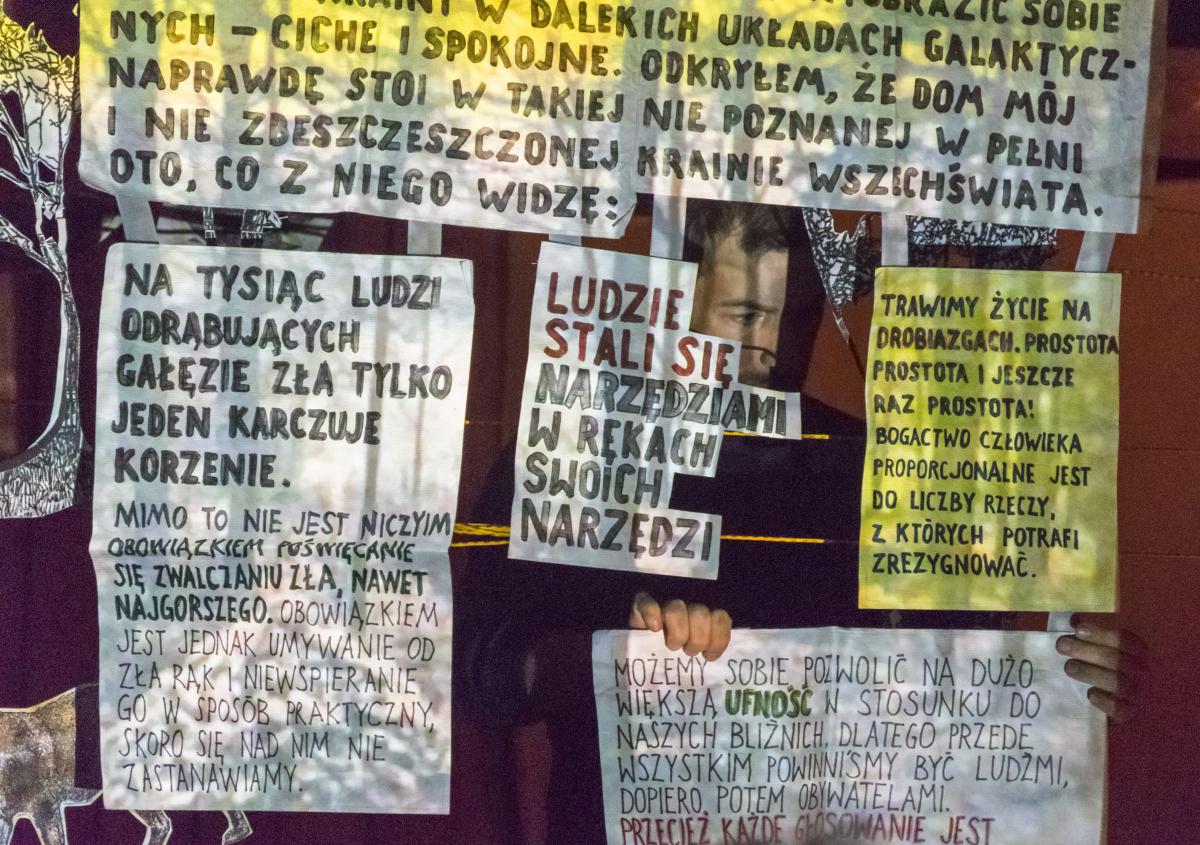 KRAINY W DALEKICH UKŁADACH GALAKTYCZ-
NYCH – CICHE I SPOKOJNE. ODKRYŁEM, ŻE DOM MÓJ
NAPRAWDĘ STOI W TAKIEJ NIE POZNANEJ W PEŁNI
I NIE ZBESZCZESZCZONEJ KRAINIE WSZECHŚWIATA.
OTO, CO Z NIEGO WIDZĘ:
NA TYSIĄC LUDZI
ODRĄBUJĄCYCH
GAŁĘZIE ZŁA TYLKO
JEDEN KARCZUJE
KORZENIE.
MIMO TO NIE JEST NICZYIM
OBOWIĄZKIEM POŚWIĘCANIE
SIĘ ZWALCZANIU ZŁA, NAWET
NAJGORSZEGO. OBOWIĄZKIEM
JEST JEDNAK UMYWANIE OD
ZŁA RĄK I NIEWSPIERANIE
GO W SPOSÓB PRAKTYCZNY,
SKORO SIĘ NAD NIM NIE
ZASTANAWIAMY.
LUDZIE
STALI SIĘ
NARZĘDZIAMI
W RĘKACH
SWOICH
NARZĘDZI
TRAWIMY ŻYCIE NA
DROBIAZGACH. PROSTOTA
PROSTOTA I JESZCZE
RAZ PROSTOTA!
BOGACTWO CZŁOWIEKA
PROPORCJONALNE JEST
DO LICZBY RZECZY,
Z KTÓRYCH POTRAFI
ZREZYGNOWAĆ.
MOŻEMY SOBIE POZWOLIĆ NA DUŻO
WIĘKSZĄ UFNOŚĆ W STOSUNKU DO
NASZYCH BLIŹNICH, DLATEGO PRZEDE
WSZYSTKIM POWINNIŚMY BYĆ LUDŹMI,
DOPIERO POTEM OBYWATELAMI.
PRZECIEŻ KAŻDE GŁOSOWANIE JEST